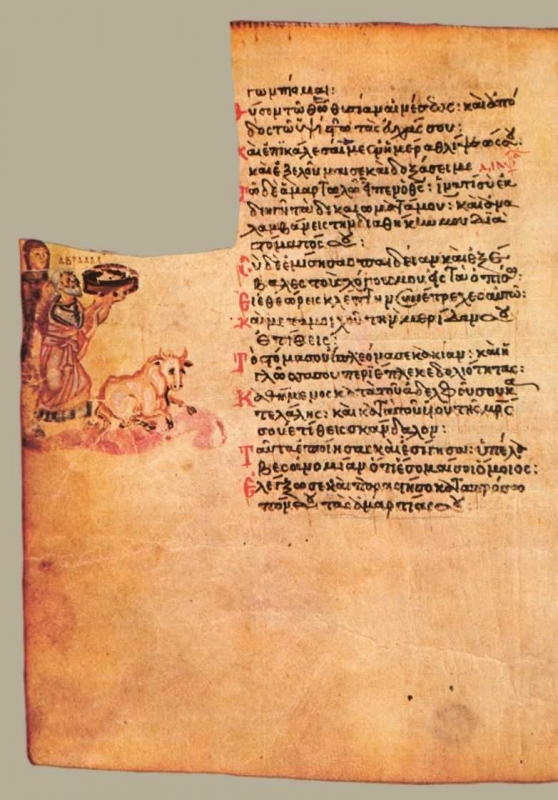 γωμ πίομαι:
θῦσομ τῶ θῶ θυσίαμ αἰμέσεως: καὶ ἀπό
δος τῶ ὑψίστω τὰς εὐχάς σου:
καὶ ἐπικάλεσαί με ἐμ ἡμέρα θλίψεώς σου:
καὶ ἐξελοῦμαι σε καὶ δοξάσεις με
τῶ δὲ ἁμαρτωλῶ εἶπεμ ὁ θς: ἱματί σὺ ἐκ
διηγῆ τὰ δικαιώματά μου: καὶ ἀμα
λαμβάμεις τὴμ διαθήκημ μου διὰ
στόματος σου:
Σὺ δὲ ἐμίσησας παιδείαμ καὶ ἐξέ
βαλες τοὺς λόγους μου εἰς τὰ ὀπίσω:
Εἰ ἐθεώρεις κλέπτημ συμέτρεχες αὐτῶ:
Καὶ μετὰ μοιχοῦ τὴμ μερίδα σου
ἐτίθεις:
Τὸ στόμα σου ἐπλεόμασε κακίαμ: καὶ ἡ
γλῶσσα σου περιέπλεκε δολιότητας:
Καθήμεμος κατὰ τοῦ ἀδελφοῦ σου κα
τελάλης: καὶ κατὰ τοῦ υἱοῦ τῆς μρς
σου ἐτίθεις σκάμδαλομ:
Ταῦτα ἐποίησας καὶ ἐσίγησα: ὑπέλα
βες ἀμομίαμ ὅτι ἔσομαι σοι ὅμοιος:
Ἐλέγξω σε καὶ παραστήσω κατὰ πρόσω
πόμ σου τὰς ἁμαρτίας σου: